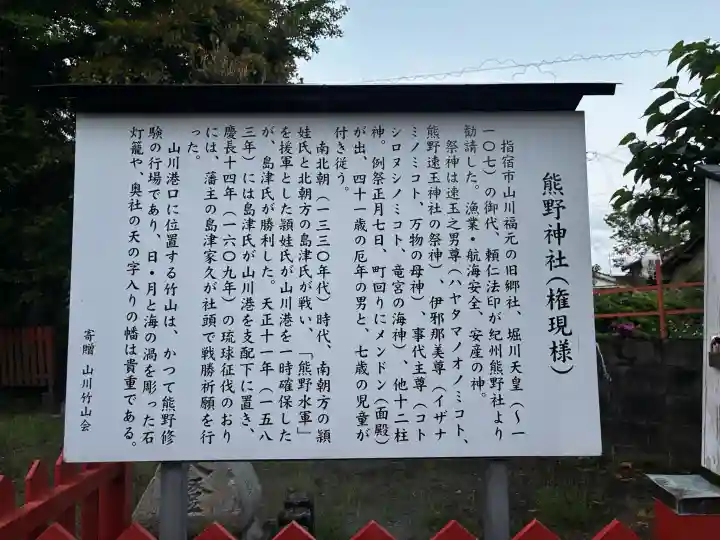 熊野神社(権現様)
指宿市山川福元の旧郷社、堀川天皇(～一
一〇七)の御代、頼仁法印が紀州熊野社より
勧請した。漁業・航海安全、安産の神。
祭神は速玉之男尊(ハヤタマノオノミコト、
熊野速玉神社の祭神)、伊邪那美尊(イザナ
ミノミコト、万物の母神)、事代主尊(コト
シロヌシノミコト、竜宮の海神)、他十二柱
神。例祭正月七日、町回りにメンドン(面殿)
が出、四十一歳の厄年の男と、七歳の児童が
付き従う。
南北朝(一三三〇年代)時代、南朝方の頴
娃氏と北朝方の島津氏が戦い、「熊野水軍」
を援軍とした頴娃氏が山川港を一時確保した
が、島津氏が勝利した。天正十一年(一五八
三年)には島津氏が山川港を支配下に置き、
慶長十四年(一六〇九年)の琉球征伐のおり
には、藩主の島津家久が社頭で戦勝祈願を行
った。
山川港口に位置する竹山は、かつて熊野修
験の行場であり、日・月と海の渦を彫った石
灯籠や、奥社の天の字入りの幡は貴重である。
寄贈 山川竹山会